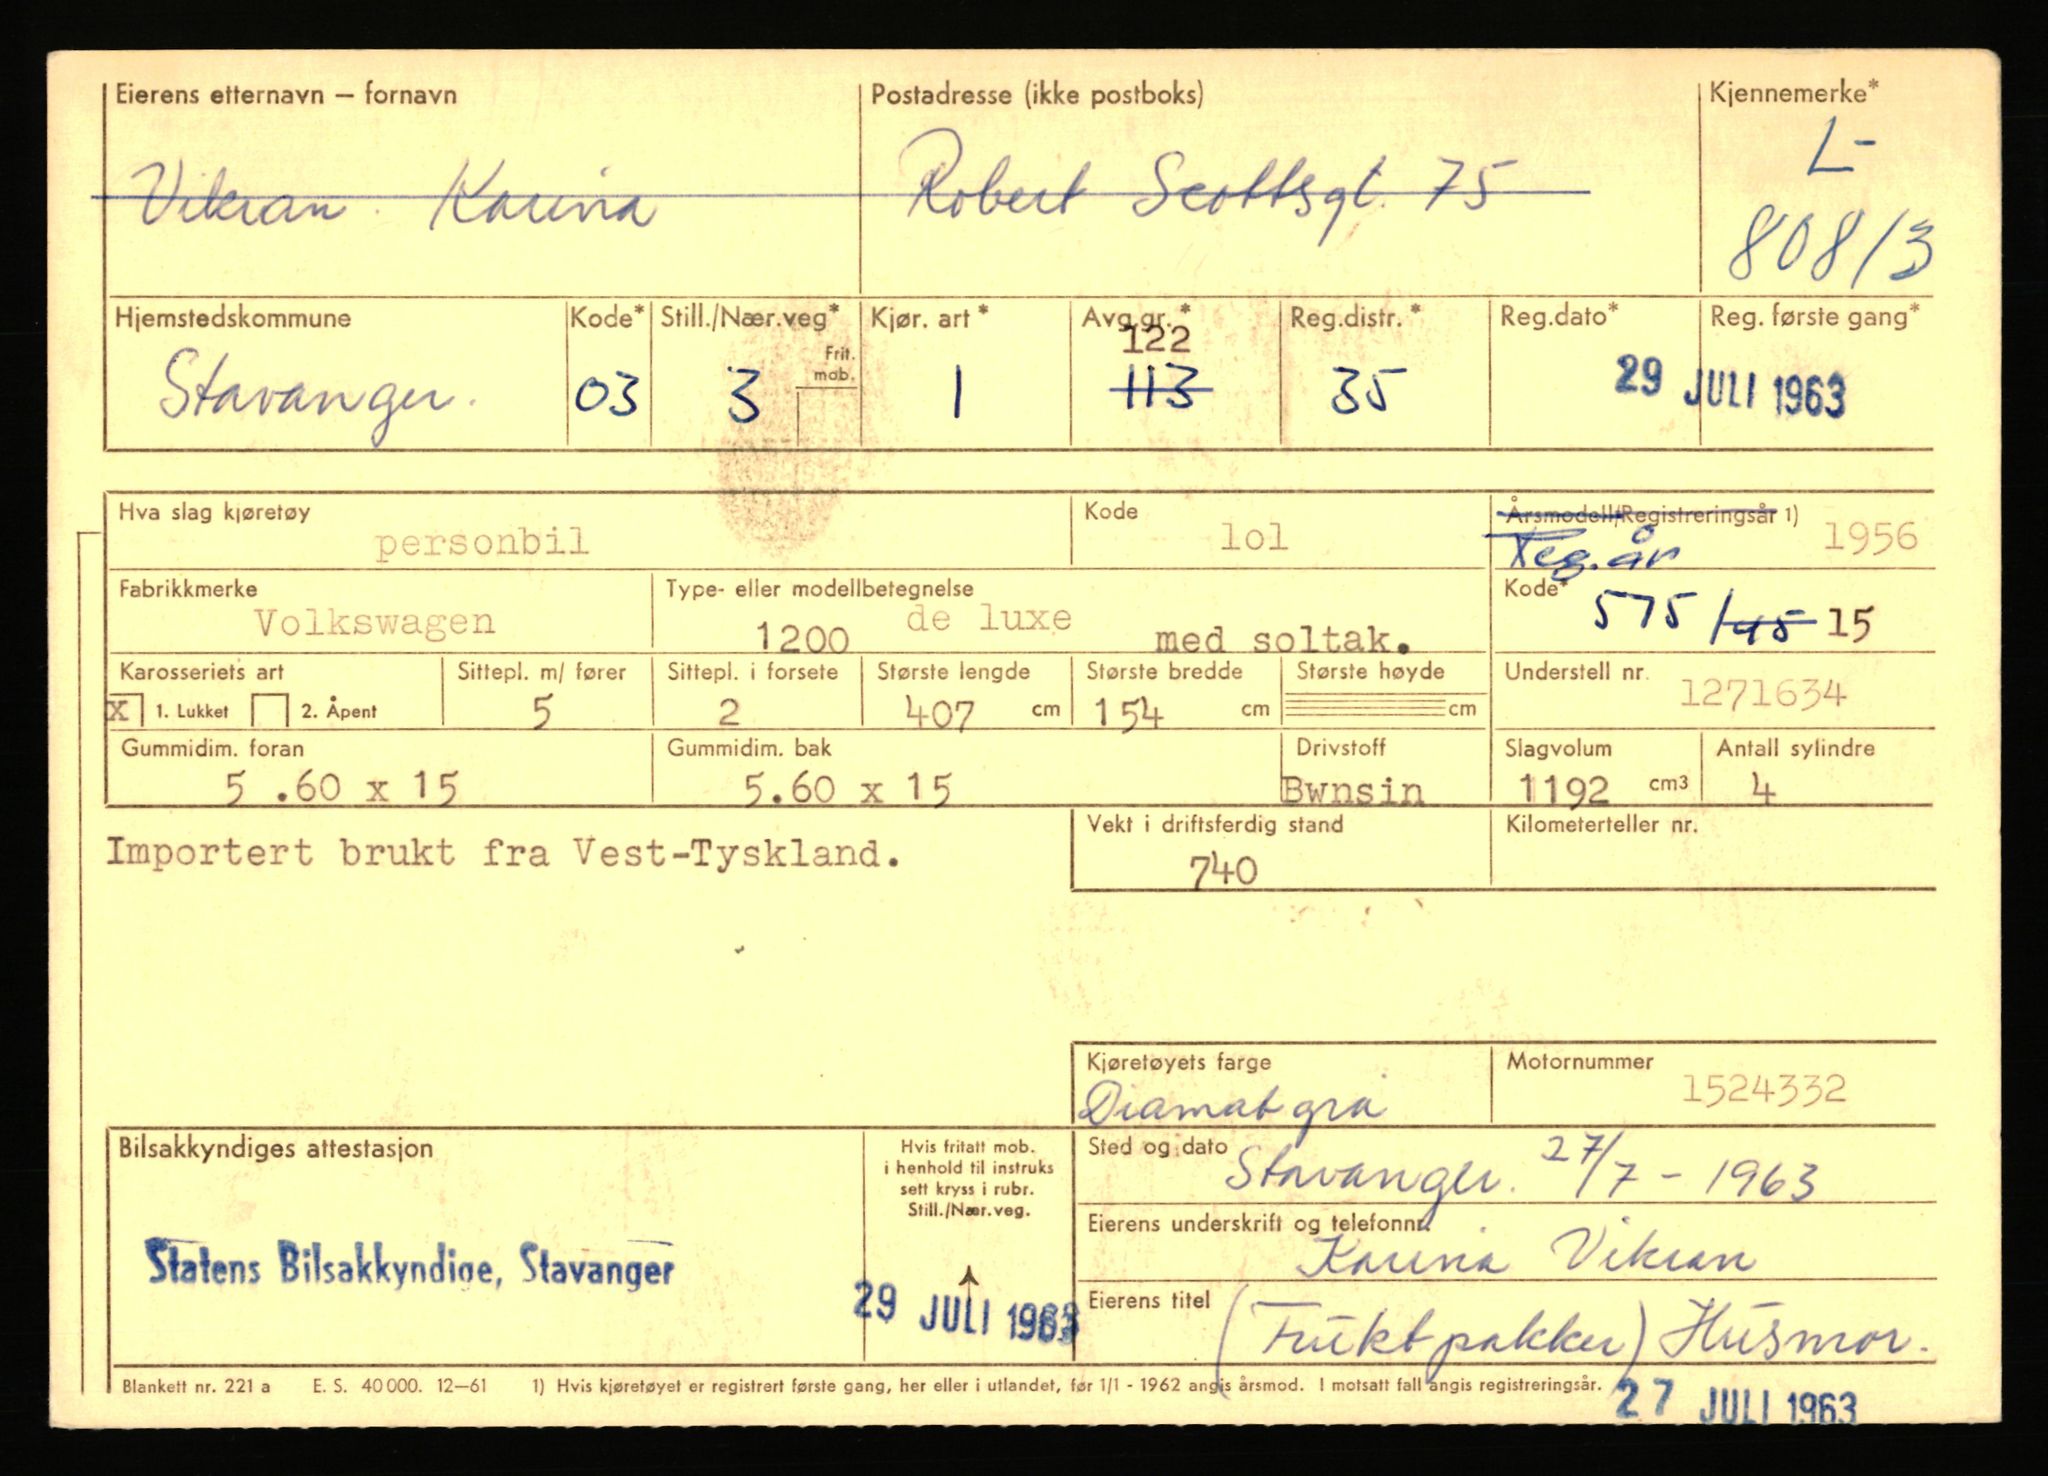 Eierens etternavn — fornavn Postadresse (ikke postboks) Kjennemerke*
Vikran Karina Robert Scottsgt. 75 L-
80813
Hjemstedskommune Kode* Still./Nær.veg* Kjør. art* Avg.gr.* Reg.distr.* Reg.dato* Reg. første gang*
Frit. mob. 122
Stavanger. 03 3 1 113 35 29 JULI 1963
Hva slag kjøretøy Kode Årsmodell/Registreringsår 1)
personbil lol Reg.år 1956
Fabrikkmerke Type- eller modellbetegnelse Kode*
Volkswagen 1200 de luxe med soltak. 575 /45 15
Karosseriets art Sittepl. m/ fører Sittepl. i forsete Største lengde Største bredde Største høyde Understell nr.
X 1. Lukket 2. Åpent 5 2 407 cm 154 cm cm 1271634
Gummidim. foran Gummidim. bak Drivstoff Slagvolum Antall sylindre
5 .60 x 15 5.60 x 15 Bwnsin 1192 cm3 4
Importert brukt fra Vest-Tyskland. Vekt i driftsferdig stand Kilometerteller nr.
740
Kjøretøyets farge Motornummer
Diamat grå 1524332
Bilsakkyndiges attestasjon
Hvis fritatt mob.
i henhold til instruks
sett kryss i rubr.
Still./Nær.veg.
Sted og dato Stavanger. 27/7 - 1963
Eierens underskrift og telefonnr.
Karina Vikran
Statens Bilsakkyndige, Stavanger
29 JULI 1963
Eierens titel (Fruktpakker) Husmor.
Blankett nr. 221 a E. S. 40 000. 12—61 1) Hvis kjøretøyet er registrert første gang, her eller i utlandet, før 1/1 - 1962 angis årsmod. I motsatt fall angis registreringsår.
27 JULI 1963